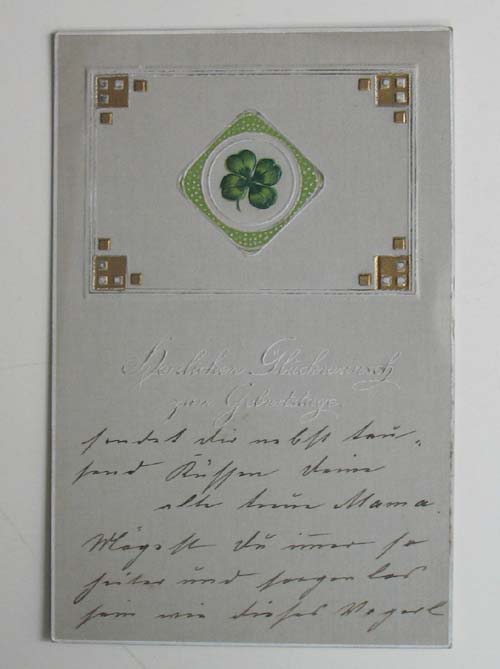 Herzlichen Glückwunsch
zum Geburtstage
sendet dir nebst tau-
send Küssen deine
alte treue Mama.
Mögest du imer so
heiter und sorgenlos
sein wie dieses Vogerl